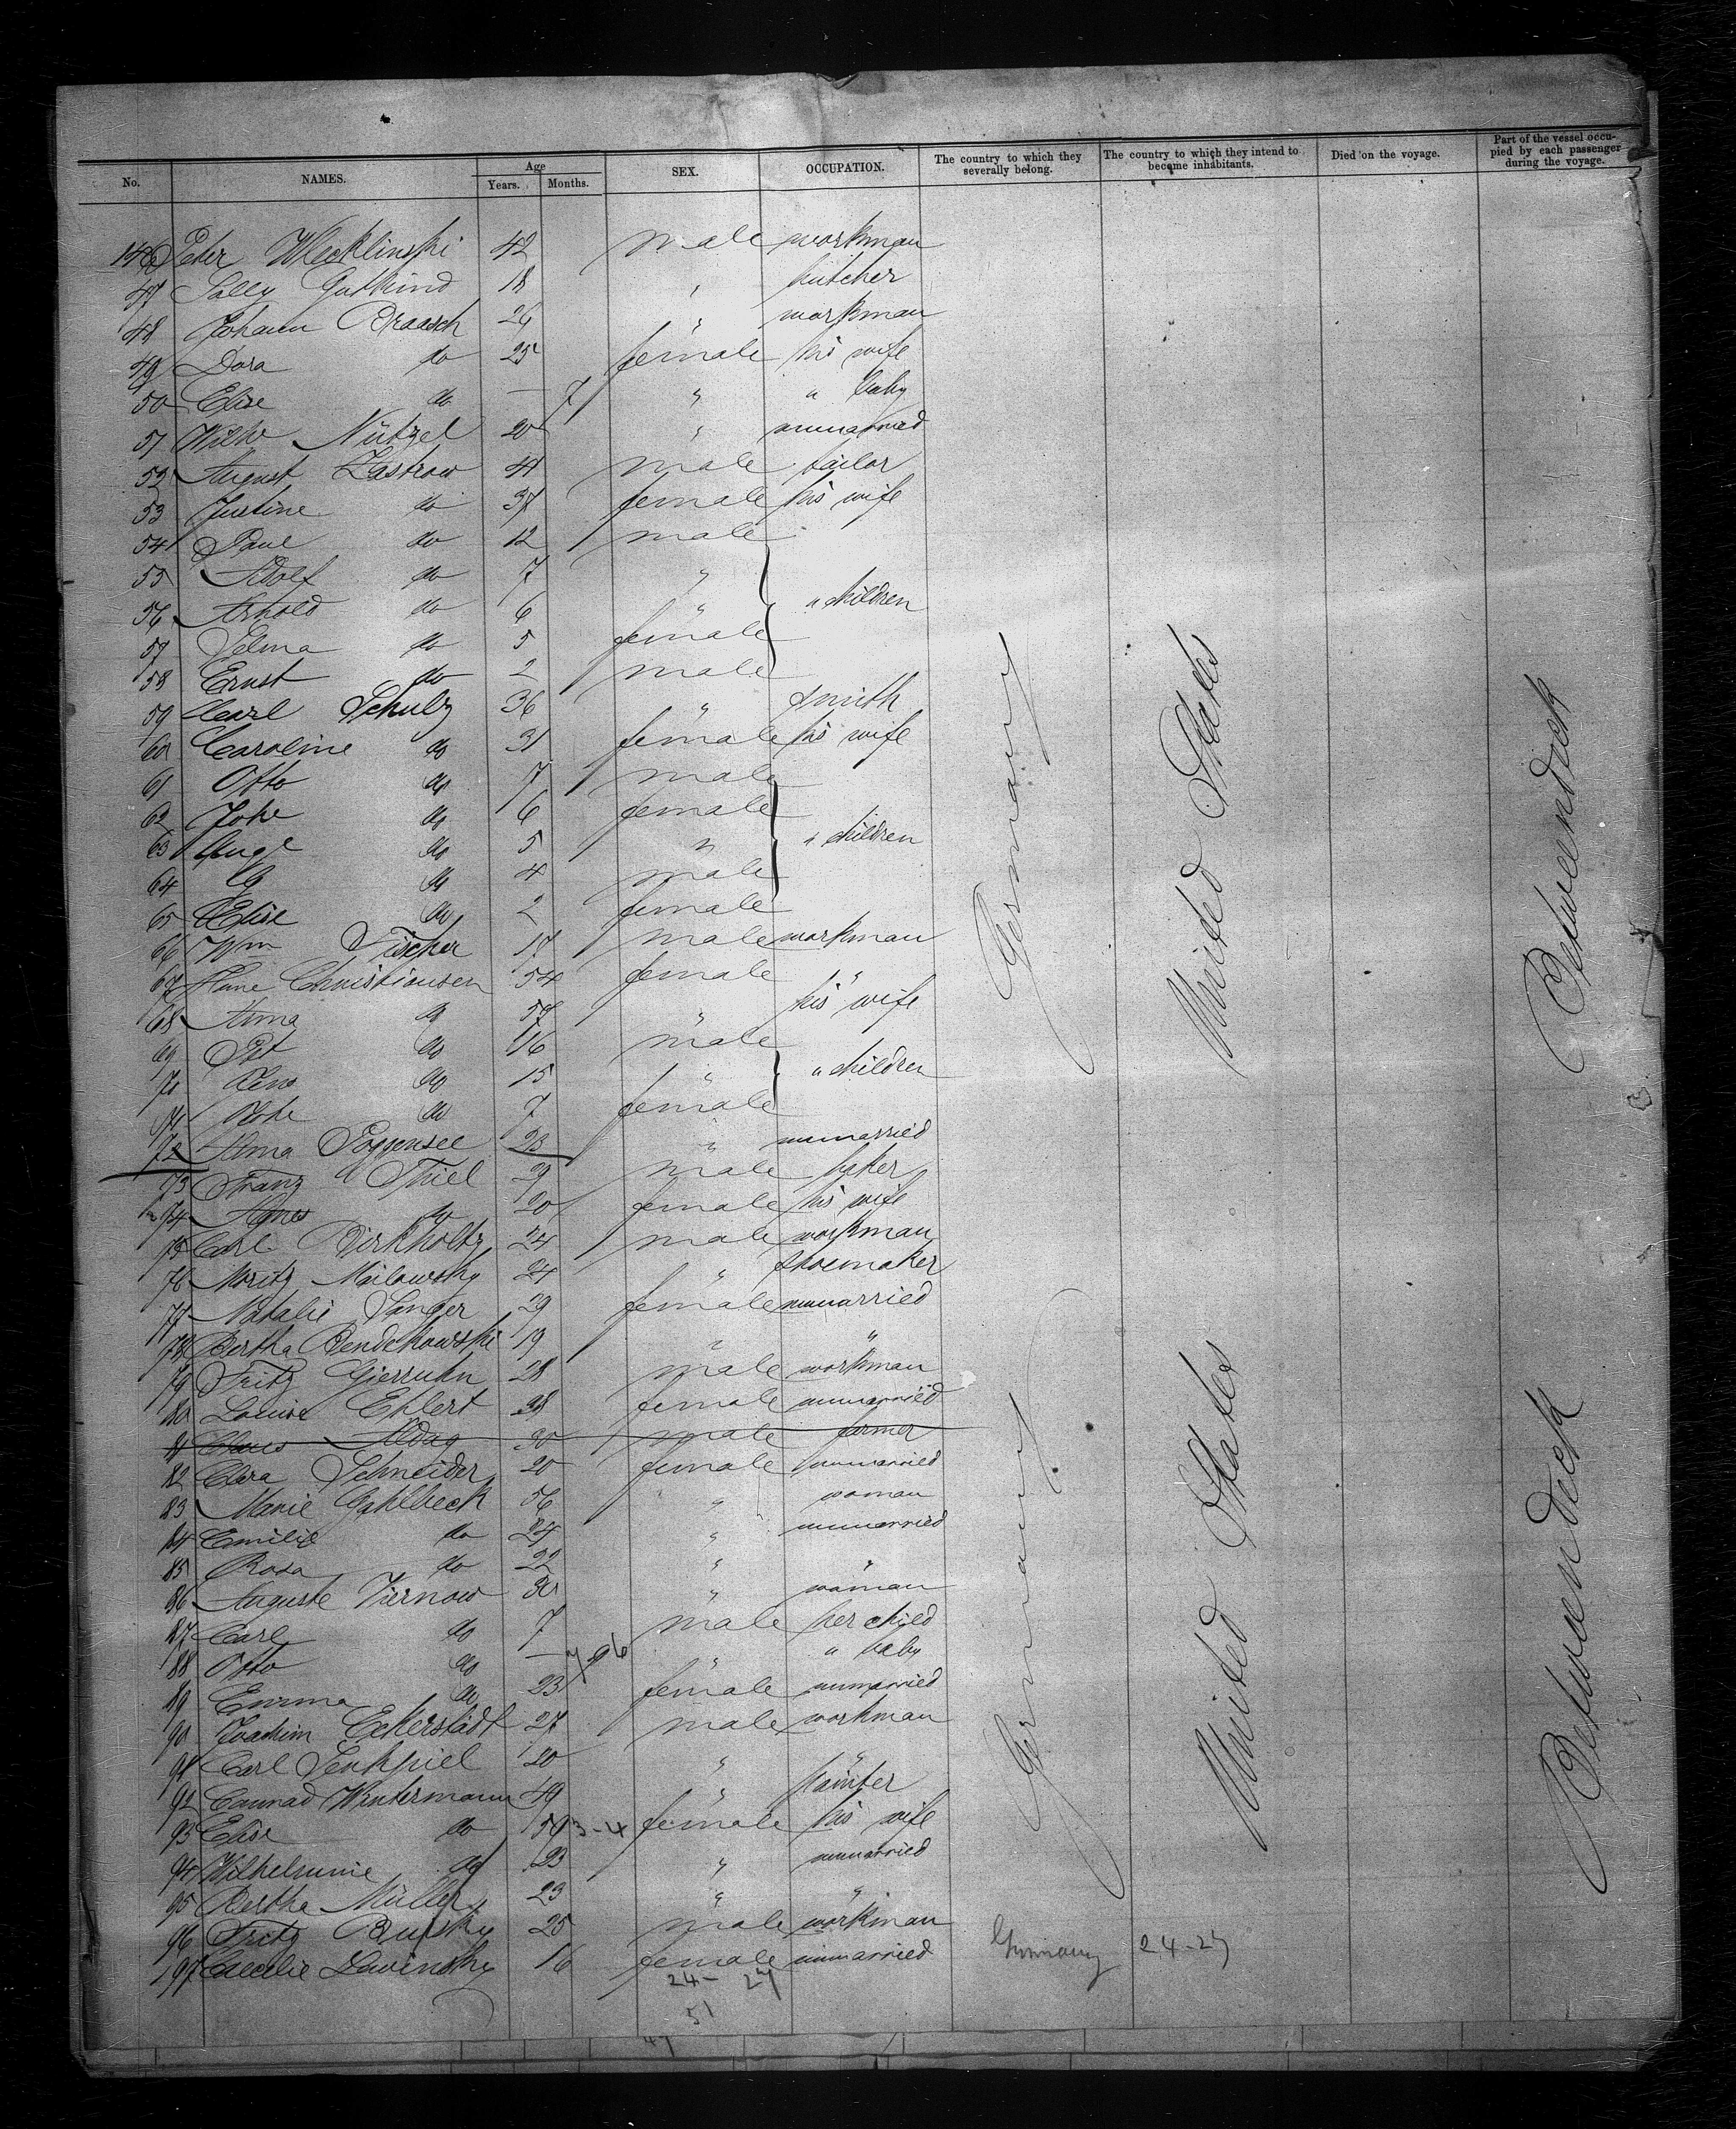 No. NAMES. Age Years. Months. SEX. OCCUPATION. The country to which they severally belong. The country to which they intend to become inhabitants. Died on the voyage. Part of the vessel occupied by each passenger during the voyage.
146 Peter Wlecklinski 42 male workman
47 Sally Gutkind 18 " butcher
48 Johann Braasch 26 " workman
49 Dora do 25 female his wife
50 Elise do — 7 " " baby
51 Wilhe Nützel 20 " unmarried
52 August Zastrow 41 male tailor
53 Justine do 37 female his wife
54 Paul do 12 male
55 Adolf do 7 "
56 Arnold do 6 " " children
57 Selma do 5 female
58 Ernst do 2 male
59 Carl Schulz 36 " smith
60 Caroline do 31 female his wife
61 Otto do 7 male
62 Johe do 6 female
63 Auge do 5 " " children
64 do 4 male
65 Elise do 2 female
66 Wm Fischer 17 male workman
67 Christiansen 54 female "
68 Anna do his wife
69 Pet do 16 male
70 do 15 " " children
71 do 7 female
72 Anna Poggensee 23 " unmarried
73 Franz Thiel 29 male baker
74 Agnes do 20 female his wife
75 Carl Birkholtz 24 male workman
76 Moritz Mailowsky 24 " shoemaker
77 Natalie Sanger 29 female unmarried
78 Bertha Bendikowski 19 " "
79 Fritz Gierruhn 28 male workman
80 Louise Ehlert 38 female unmarried
81 Claus Aldag 30 male farmer
82 Clara Schneider 20 female unmarried
83 Marie Gahlbeck 56 " woman
84 Emilie do 24 " unmarried
85 Rosa do 22 " "
86 Auguste Viernow 30 " woman
87 Carl do 7 male her child
88 Otto do — " " baby
89 Emma do 23 female unmarried
90 Joachim Eckerstädt 27 male workman
91 Carl Senkpiel 20 " "
92 Conrad Wintermann 49 " painter
93 Elise do 50 3-4 female his wife
94 Wilhelmine do 23 " unmarried
95 Bertha Müller 23 " "
96 Fritz 25 male workman
197 Caecilie Lewinsky 16 female unmarried Germany 24-27
24- 27
51
47
Germany United States Betweendeck
Germany United States Betweendeck